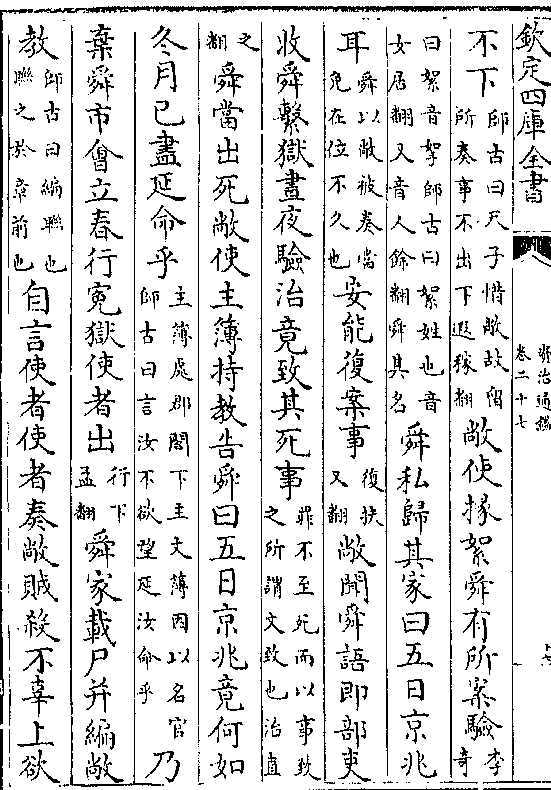 欽定四庫全書
資治通鑑
卷二十七
不下師古曰天子惜敞故留所奏事不出下遐稼翻敞使掾絮舜有所案驗李奇
曰絮音挐師古曰絮姓也音女居翻又音人餘翻舜其名舜私歸其家曰五日京兆
耳舜以敞被奏當免在位不久也安能復案事復扶又翻敞聞舜語即部吏
收舜繫獄晝夜驗治竟致其死事罪不至死而以事致之所謂文致也治直
之翻舜當出死敞使主簿持教告舜曰五日京兆竟何如
冬月已盡延命乎主簿處郡閤下主文簿因以名官師古曰言汝不欲望延汝命乎乃
棄舜市會立春行冤獄使者出行下孟翻舜家載尸并編敞
教師古曰編聯也聯之於章前也自言使者使者奏敞賊殺不辜上欲